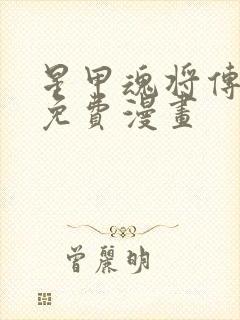 星甲魂将傳
免費漫畫
曾麗明